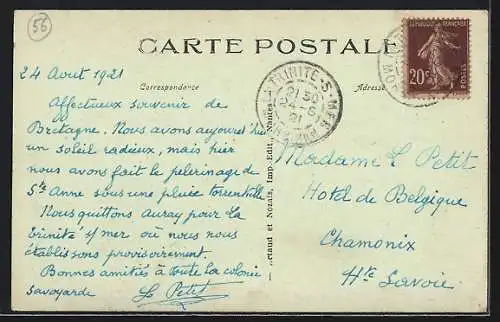 56
CARTE POSTALE
24 Aout 1921
Correspondance
Adresse
Affectueux souvenir de
Bretagne. Nous avons aujourd'hui
un soleil radieux, mais hier
nous avons fait le pelerinage de
Ste Anne sous une pluie torrentielle
Nous quittons Auray pour la
Trinité s/mer où nous nous
établissons provisoirement.
Bonnes amitiés à toute la colonie
Savoyarde
L. Petit
et Nozais, Imp.-Edit., Nantes
LA TRINITÉ-S-MER
21 30
21
REPUBLIQUE FRANÇAISE
20c
POSTES
Madame Le Petit
Hotel de Belgique
Chamonix
Hte Savoie